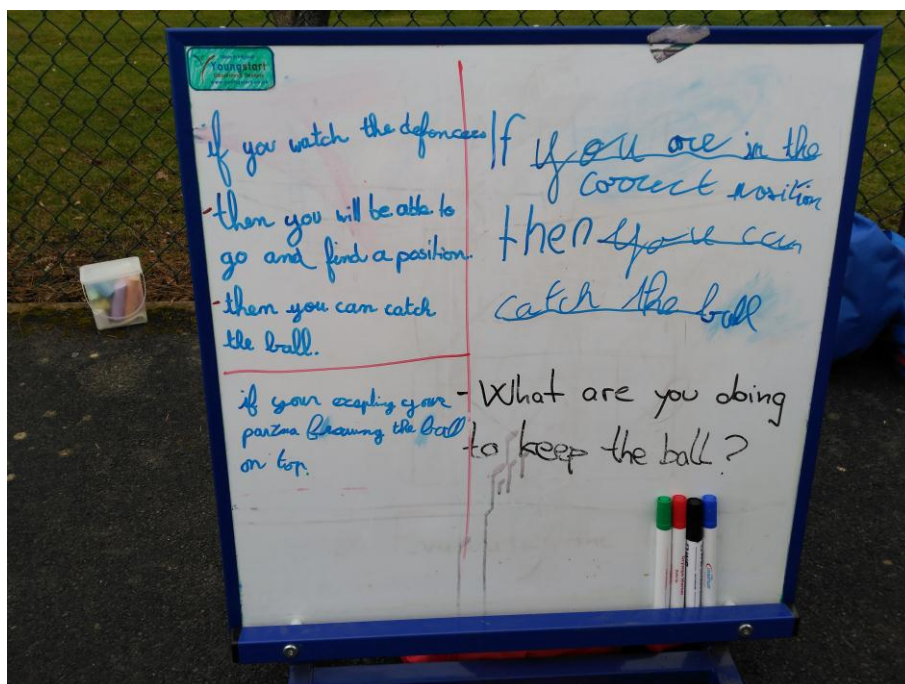 Youngstart
if you watch the defencers
- then you will be able to
go and find a position.
- them you can catch
the ball.
if your your
the ball
on top.
If you are in the
correct position
then you can
catch the ball
- What are you doing
to keep the ball?